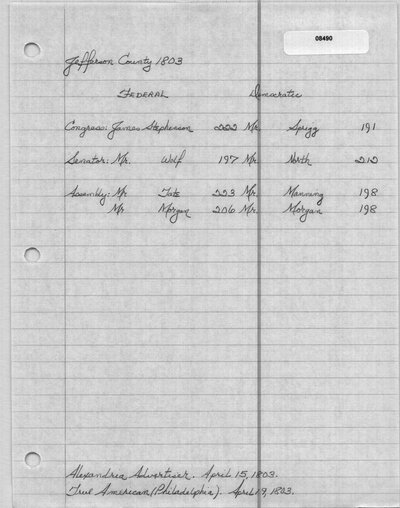 08490
Jefferson County 1803
FEDERAL Democratic
Congress: James Stephenson 222 Mr. Sprigg 191
Senator: Mr. Wolf 197 Mr. North 212
Assembly: Mr Tate 223 Mr. Manning 198
Mr Morgan 206 Mr. Morgan 198
Alexandria Advertiser. April 15, 1803.
True American (Philadelphia). April 19, 1803.